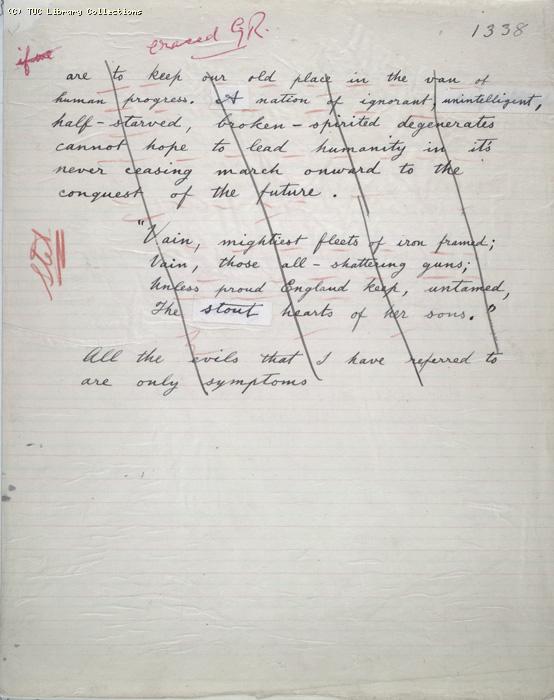 (C) TUC Library Collections
erased G.R.
1338
if we
are to keep our old place in the van of
human progress. A nation of ignorant, unintelligent,
half-starved, broken-spirited degenerates
cannot hope to lead humanity in it's
never ceasing march onward to the
conquest of the future.
Stet
"Vain, mightiest fleets of iron framed;
Vain, those all-shattering guns;
Unless proud England keep, untamed,
The stout hearts of her sons."
All the evils that I have referred to
are only symptoms